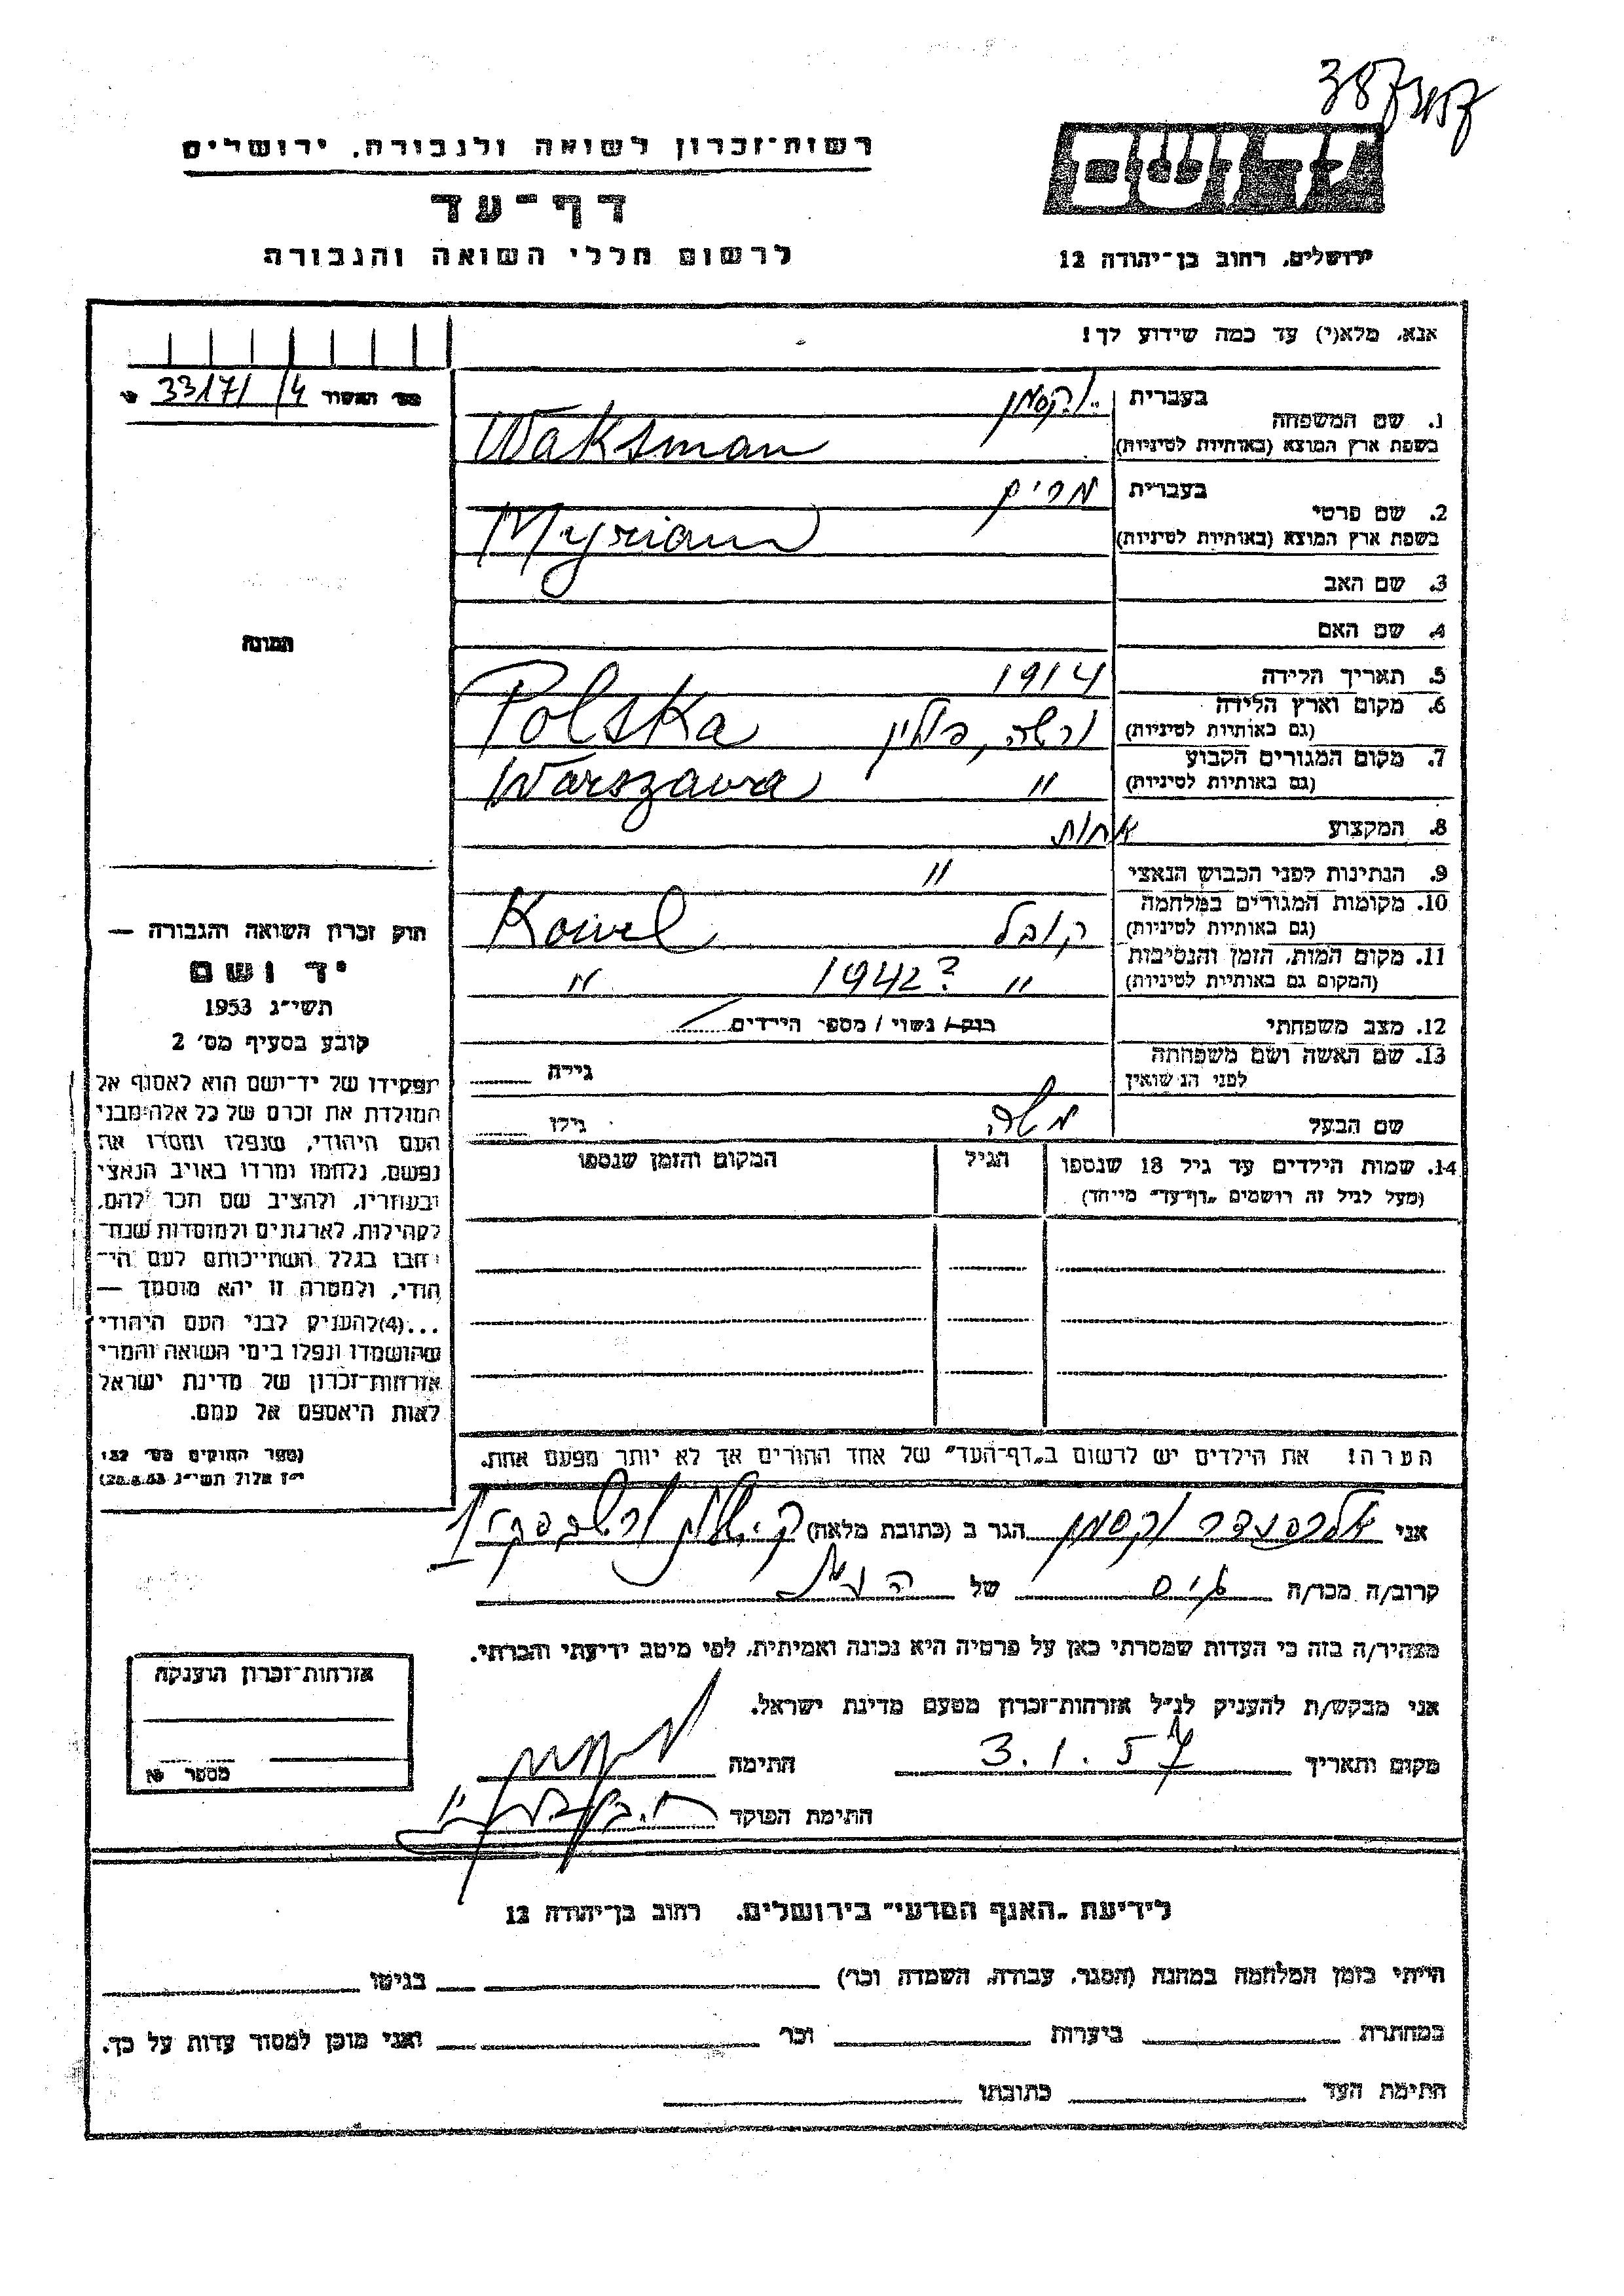 387345
רשות־זכרון לשואה ולגבורה. ירושלים
דף־עד
לרשום חללי השואה והגבורה
יד ושם
ירושלים. רחוב בן־יהודה 12
אנא, מלא(י) עד כמה שידוע לך!
מס׳ האשור 33171/4
1. שם המשפחה
בעברית וקסמן
בשפת ארץ המוצא (באותיות לטיניות) Waksman
2. שם פרטי
בעברית מרים
בשפת ארץ המוצא (באותיות לטיניות) Myriam
3. שם האב
4. שם האם
5. תאריך הלידה 1914
6. מקום וארץ הלידה
(גם באותיות לטיניות) ורשה, פולין Polska
7. מקום המגורים הקבוע
(גם באותיות לטיניות) " Warszawa
8. המקצוע אחות
9. הנתינות לפני הכבוש הנאצי "
10. מקומות המגורים במלחמה
(גם באותיות לטיניות) קובל Kowel
11. מקום המות, הזמן והנסיבות
(המקום גם באותיות לטיניות) " 1942? "
12. מצב משפחתי רוק / נשוי / מספר הילדים
13. שם האשה ושם משפחתה
לפני הנישואין גילה
שם הבעל משה גילו
14. שמות הילדים עד גיל 18 שנספו הגיל המקום והזמן שנספו
(מעל לגיל זה רושמים „דף־עד" מיוחד)
הערה! את הילדים יש לרשום ב„דף־העד" של אחד ההורים אך לא יותר מפעם אחת.
התמונה
חוק זכרון השואה והגבורה —
יד ושם
תשי״ג 1953
קובע בסעיף מס׳ 2
תפקידו של יד־ושם הוא לאסוף אל
המולדת את זכרם של כל אלה מבני
העם היהודי, שנפלו ומסרו את
נפשם, נלחמו ומרדו באויב הנאצי
ובעוזריו, ולהציב שם וזכר להם,
לקהילות, לארגונים ולמוסדות שנח־
רבו בגלל השתייכותם לעם הי־
הודי, ולמטרה זו יהא מוסמך —
...(4)להעניק לבני העם היהודי
שהושמדו ונפלו בימי השואה והמרי
אזרחות־זכרון של מדינת ישראל
לאות היאספם אל עמם.
(ספר החוקים מס׳ 132
י״ז אלול תשי״ג 28.8.53)
אני אלכסנדר וקסמן הגר ב (כתובת מלאה)
קרוב/ה מכר/ה גיס של
מצהיר/ה בזה כי העדות שמסרתי כאן על פרטיה היא נכונה ואמיתית, לפי מיטב ידיעתי והכרתי.
אני מבקש/ת להעניק לנ״ל אזרחות־זכרון מטעם מדינת ישראל.
מקום ותאריך 3.1.57 חתימה
חתימת הפוקד
אזרחות־זכרון הוענקה
מספר
לידיעת „האגף המדעי" בירושלים. רחוב בן־יהודה 12
הייתי בזמן המלחמה במחנה (הסגר, עבודה, השמדה וכר׳) בגיטו
במחתרת ביערות וכר׳ ואני מוכן למסור עדות על כך.
חתימת העד כתובתו